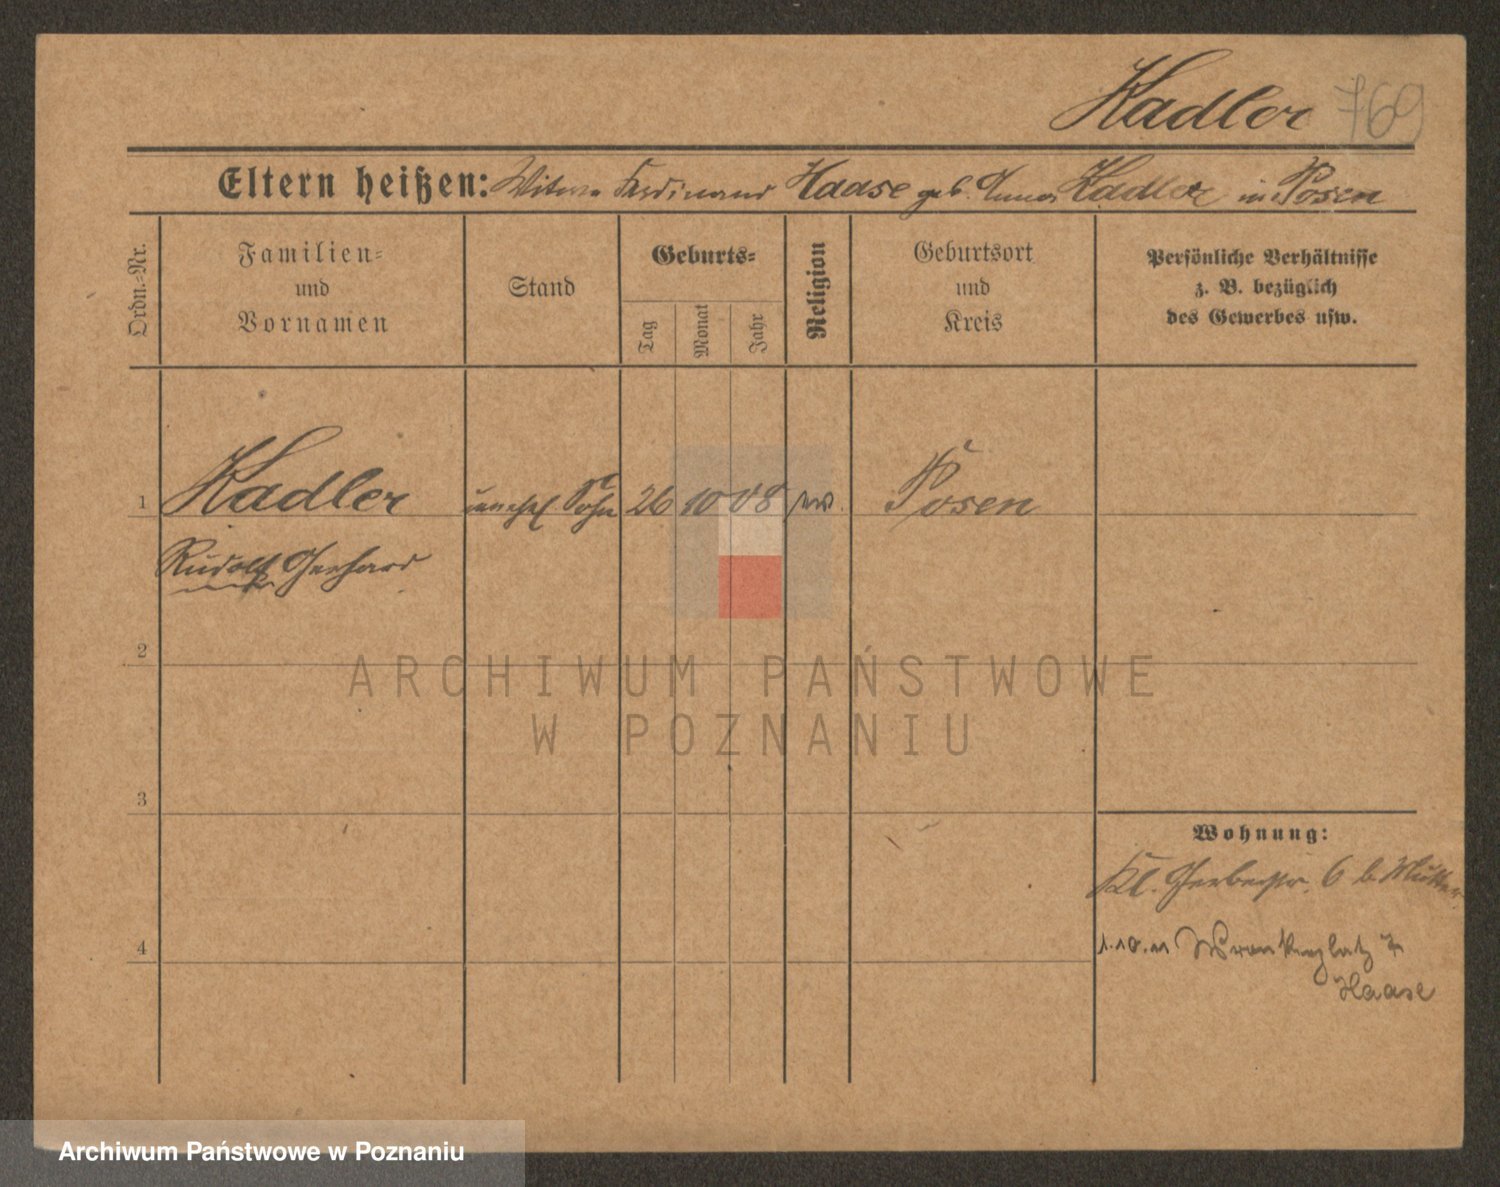 Kadler 769
Eltern heißen: Witwe Ferdinand Haase geb. Anna Kadler in Posen
Ordn.-Nr.
Familien-
und
Vornamen
Stand
Geburts-
Tag
Monat
Jahr
Religion
Geburtsort
und
Kreis
Persönliche Verhältnisse
z. B. bezüglich
des Gewerbes usw.
1 Kadler unehel Sohn 26 10 08 ev. Posen
Rudolf Gerhard
2
ARCHIWUM PAŃSTWOWE
W POZNANIU
3
Wohnung:
Kl. Gerberstr. 6 b. Mutter
4
1.10.11 Wronkerplatz
Haase
Archiwum Państwowe w Poznaniu